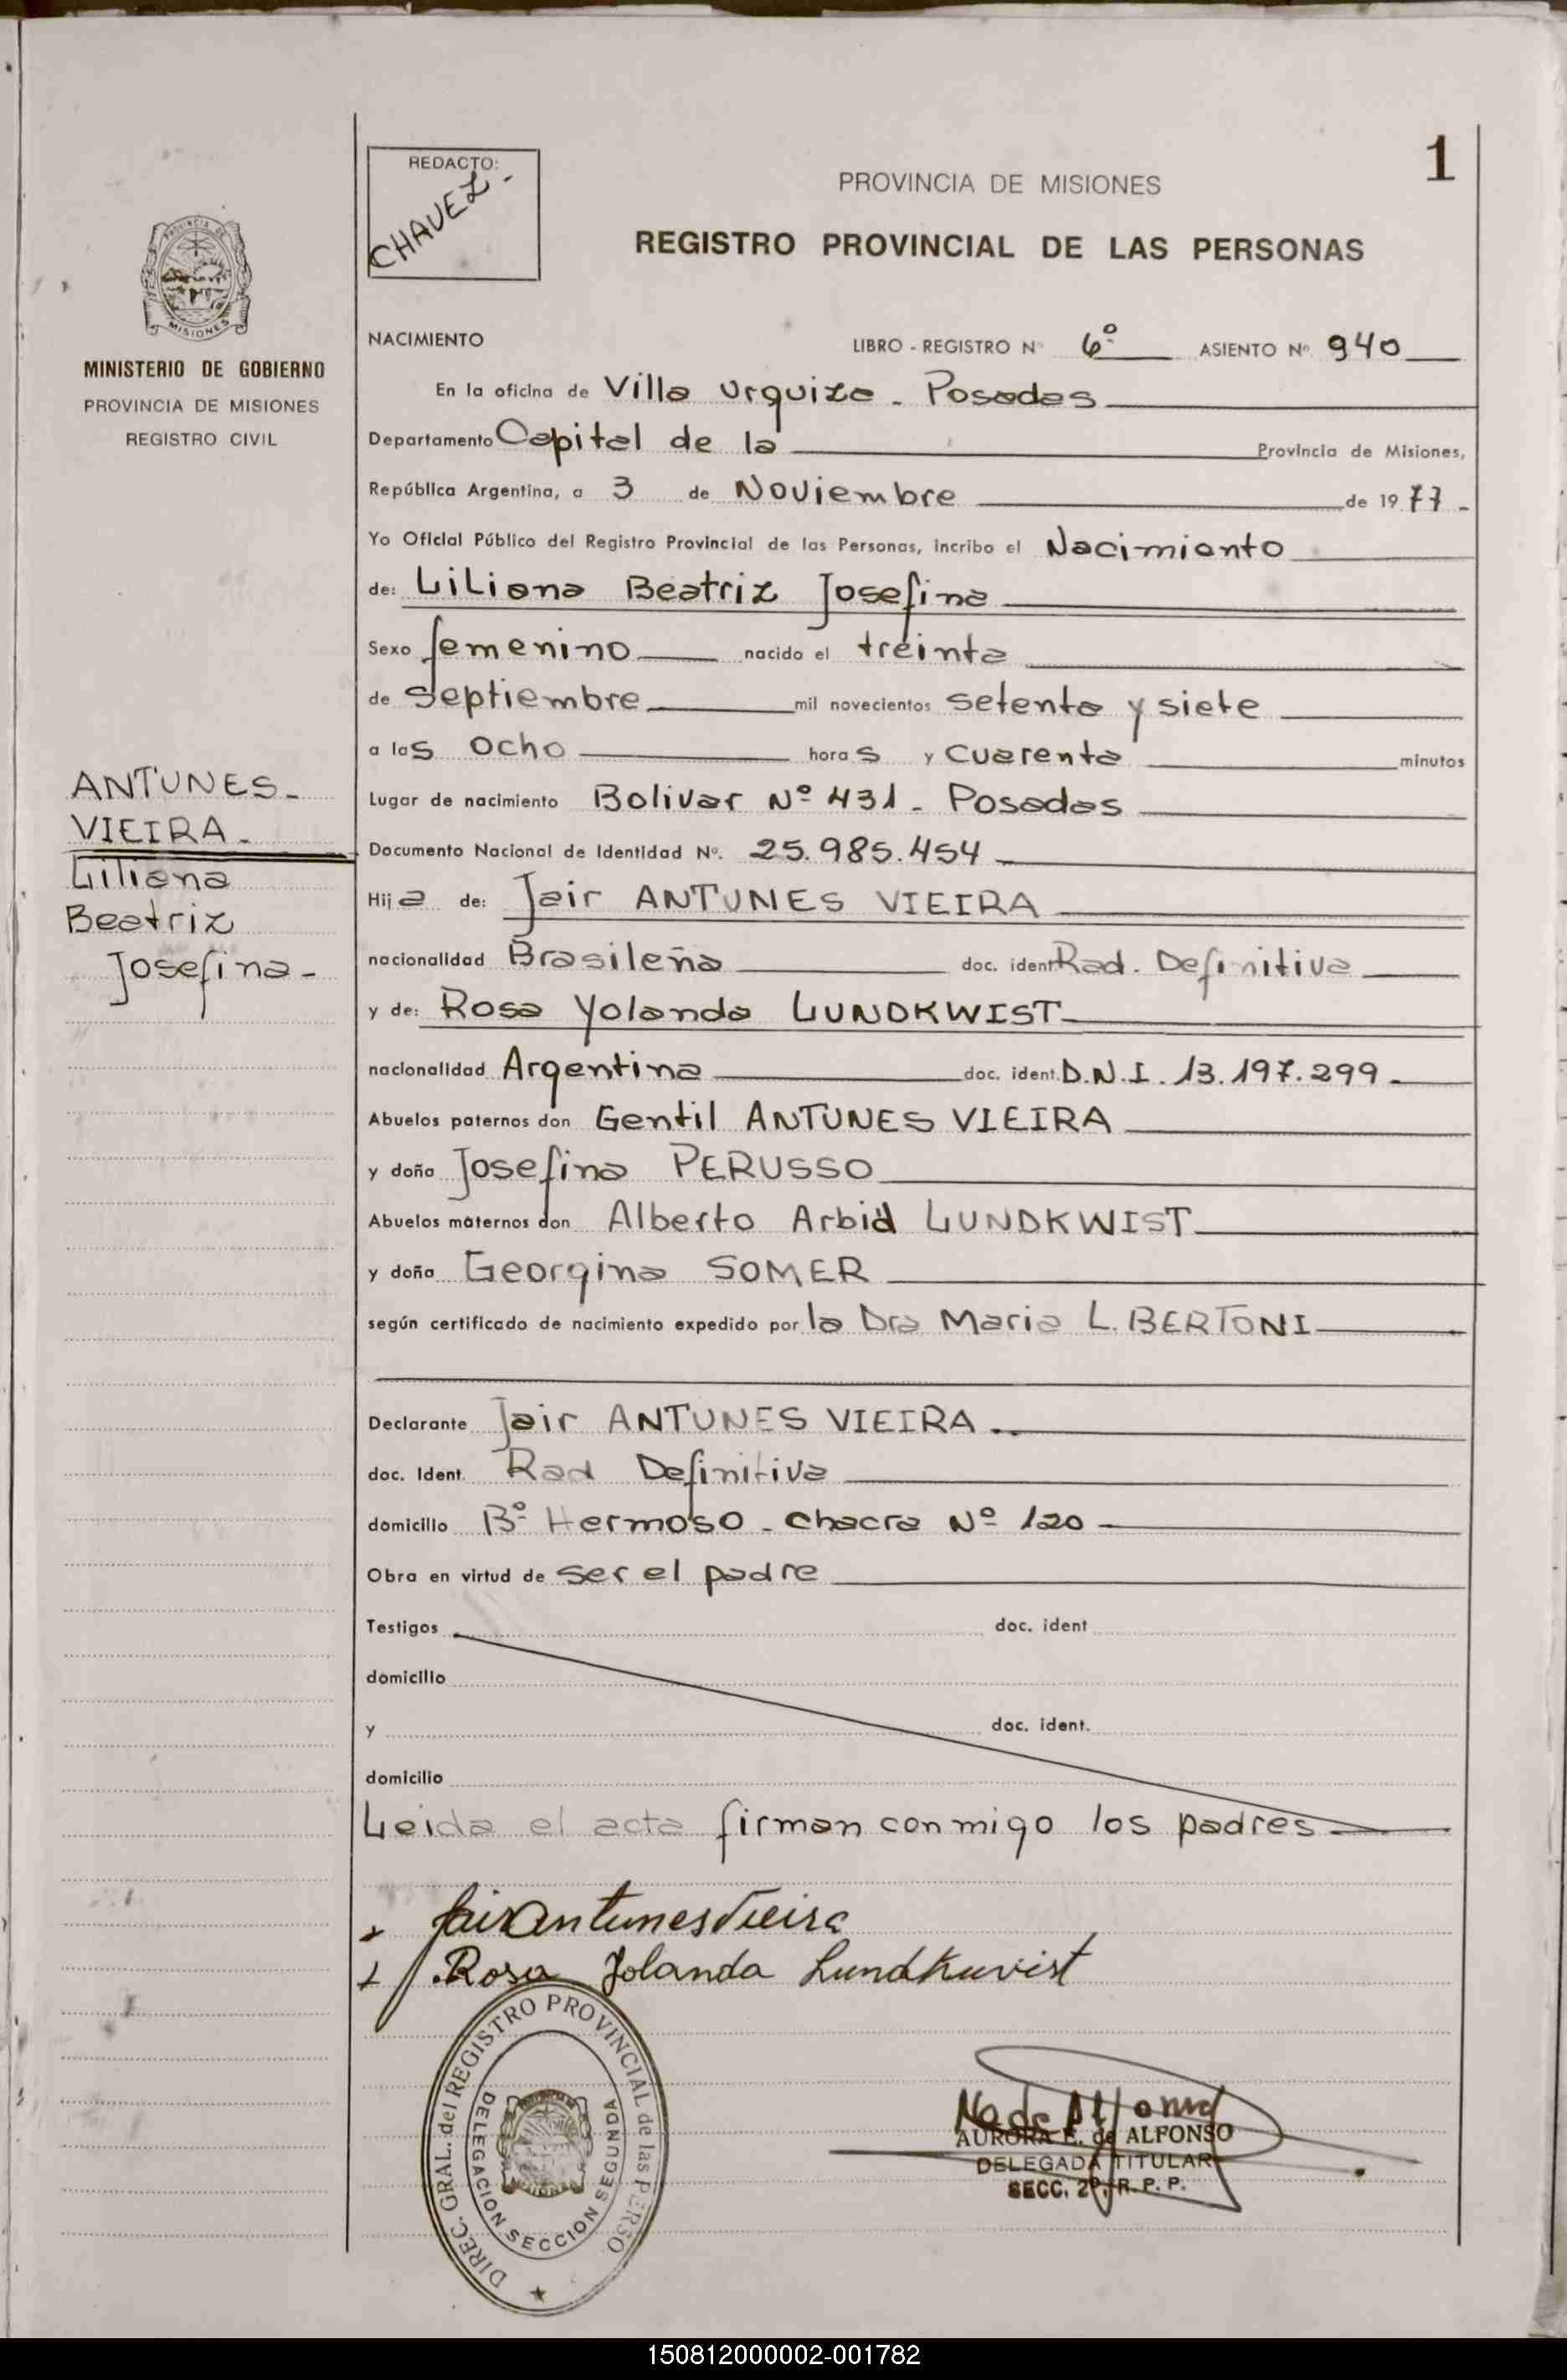 1
REDACTO:
CHAVEZ-
PROVINCIA DE MISIONES
REGISTRO PROVINCIAL DE LAS PERSONAS
PROVINCIA DE
MISIONES
MINISTERIO DE GOBIERNO
PROVINCIA DE MISIONES
REGISTRO CIVIL
NACIMIENTO LIBRO - REGISTRO Nº 6º ASIENTO Nº 940
En la oficina de Villa Urquiza - Posadas
Departamento Capital de la Provincia de Misiones,
República Argentina, a 3 de Noviembre de 1977-
Yo Oficial Público del Registro Provincial de las Personas, incribo el Nacimiento
de: Liliana Beatriz Josefina
Sexo femenino nacido el treinta
de Septiembre mil novecientos setenta y siete
a las ocho horas y cuarenta minutos
Lugar de nacimiento Bolivar Nº 431 - Posadas
Documento Nacional de Identidad Nº. 25.985.454
Hija de: Jair ANTUNES VIEIRA
nacionalidad Brasileña doc. ident Rad. Definitiva
y de: Rosa Yolanda LUNDKWIST
nacionalidad Argentina doc. ident. D.N.I. 13.197.299-
Abuelos paternos don Gentil ANTUNES VIEIRA
y doña Josefina PERUSSO
Abuelos maternos don Alberto Arbid LUNDKWIST
y doña Georgina SOMER
según certificado de nacimiento expedido por la Dra Maria L. BERTONI
Declarante Jair ANTUNES VIEIRA
doc. Ident. Rad Definitiva
domicilio Bº Hermoso - Chacra Nº 120
Obra en virtud de ser el padre
Testigos doc. ident
domicilio
y doc. ident.
domicilio
Leida el acta firman conmigo los padres
ANTUNES-
VIEIRA-
Liliana
Beatriz
Josefina-
Jair Antunes Vieira
Rosa Jolanda Lundkuvist
DIREC. GRAL. del REGISTRO PROVINCIAL de las PERSO.
DELEGACION SECCION SEGUNDA
AURORA E. de ALFONSO
DELEGADA TITULAR
SECC. 2º. R. P. P.
150812000002-001782